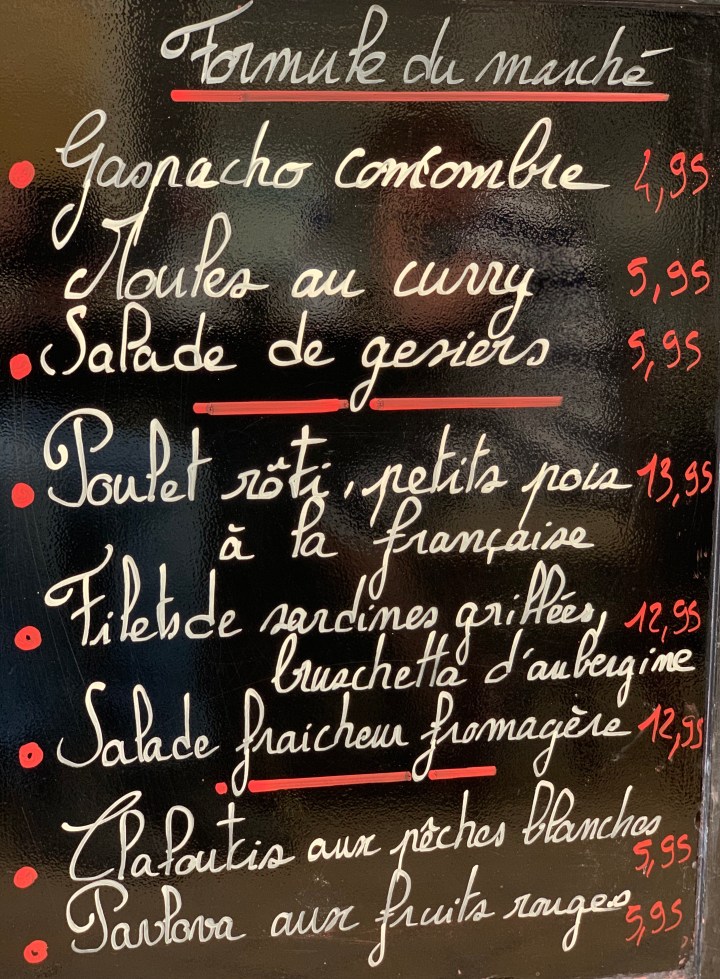 Formule du marché
Gaspacho concombre 4,95
Moules au curry 5,95
Salade de gesiers 5,95
Poulet rôti, petits pois 13,95
à la française
Filets de sardines grillées, 12,95
bruschetta d'aubergine
Salade fraicheur fromagère 12,95
Clafoutis aux pêches blanches
5,95
Pavlova aux fruits rouges 5,95